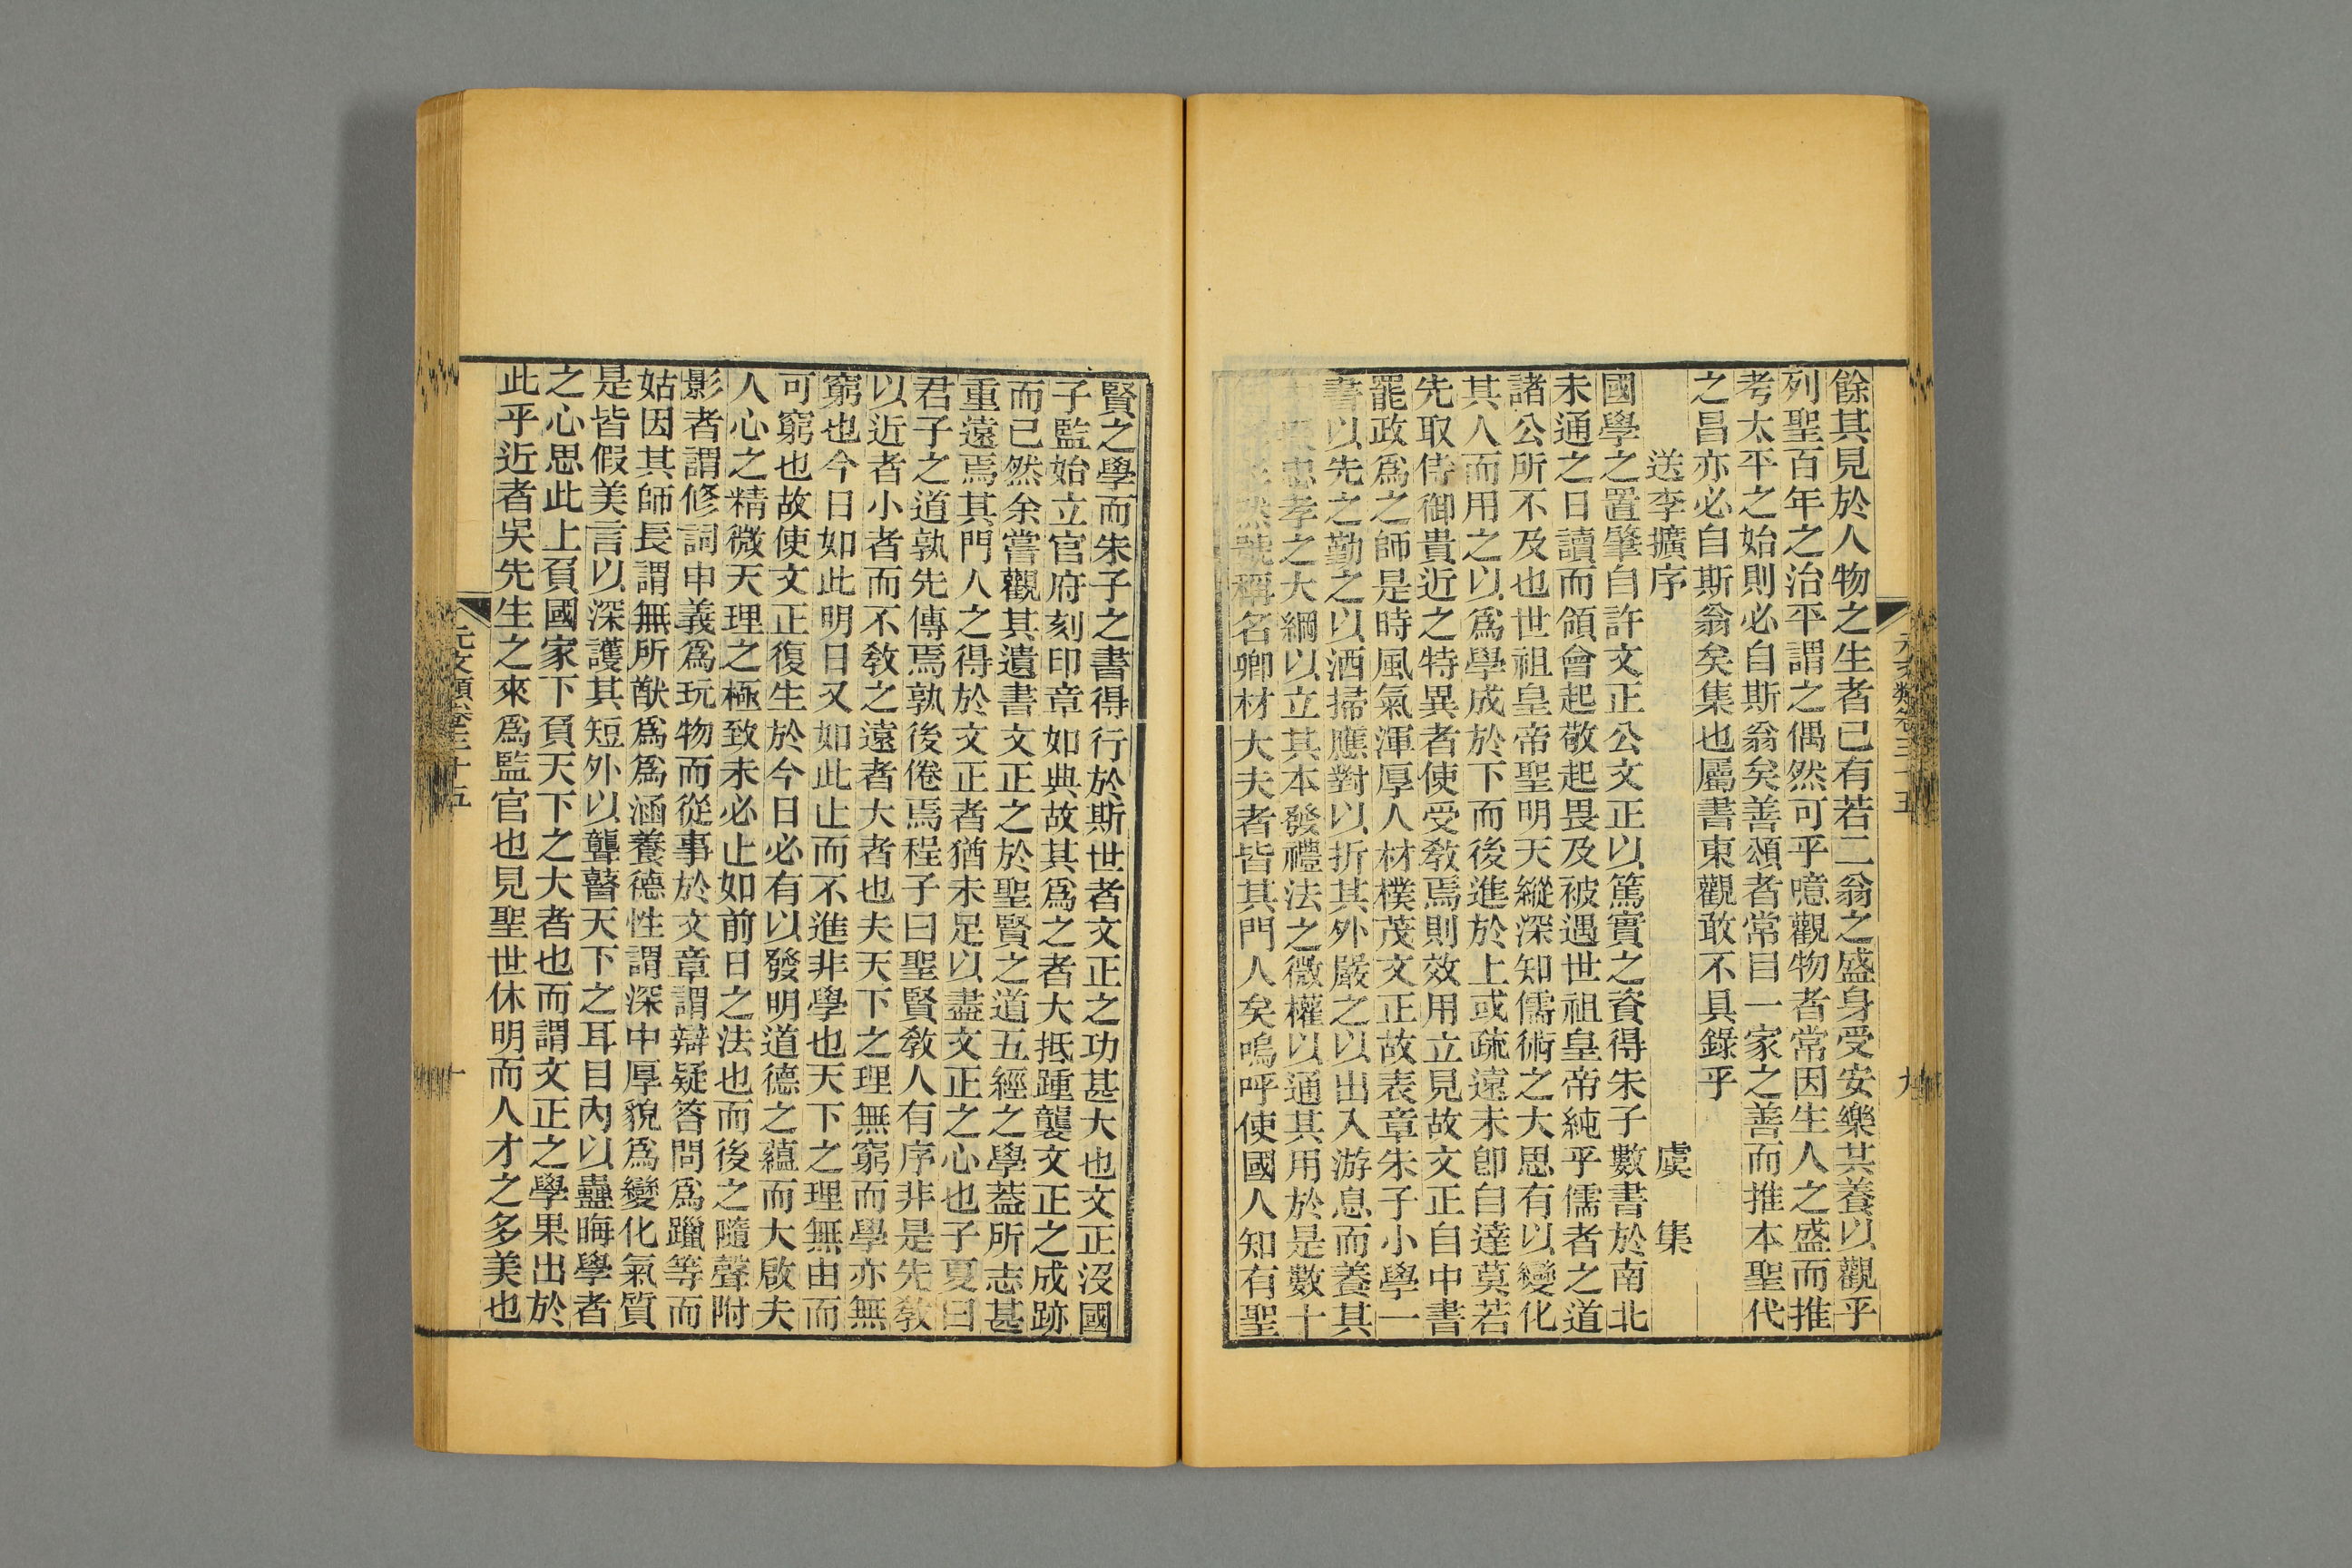 餘其見於人物之生者已有若二翁之盛身受安樂其養以觀乎
列聖百年之治平謂之偶然可乎噫觀物者常因生人之盛而推
考太平之始則必自斯翁矣善頌者常目一家之善而推本聖代
之昌亦必自斯翁矣集也屬書東觀敢不具錄乎
送李擴序 虞集
國學之置肇自許文正公文正以篤實之資得朱子數書於南北
未通之日讀而領會起敬起畏及被遇世祖皇帝純乎儒者之道
諸公所不及也世祖皇帝聖明天縱深知儒術之大思有以變化
其人而用之以爲學成於下而後進於上或疏遠未卽自達莫若
先取侍御貴近之特異者使受敎焉則效用立見故文正自中書
罷政爲之師是時風氣渾厚人材樸茂文正故表章朱子小學一
書以先之勤之以洒掃應對以折其外嚴之以出入游息而養其
忠孝之大綱以立其本發禮法之微權以通其用於是數十
然號稱名卿材大夫者皆其門人矣嗚呼使國人知有聖
賢之學而朱子之書得行於斯世者文正之功甚大也文正沒國
子監始立官府刻印章如典故其爲之者大抵踵襲文正之成跡
而已然余嘗觀其遺書文正之於聖賢之道五經之學葢所志甚
重遠焉其門人之得於文正者猶未足以盡文正之心也子夏曰
君子之道孰先傳焉孰後倦焉程子曰聖賢敎人有序非是先敎
以近者小者而不敎之遠者大者也夫天下之理無窮而學亦無
窮也今日如此明日又如此止而不進非學也天下之理無由而
可窮也故使文正復生於今日必有以發明道德之蘊而大啟夫
人心之精微天理之極致未必止如前日之法也而後之隨聲附
影者謂修詞申義爲玩物而從事於文章謂辯疑答問爲躐等而
姑因其師長謂無所猷爲爲涵養德性謂深中厚貌爲變化氣質
是皆假美言以深護其短外以聾瞽天下之耳目內以蠱晦學者
之心思此上負國家下負天下之大者也而謂文正之學果出於
此乎近者吳先生之來爲監官也見聖世休明而人才之多美也
元文類卷三十五